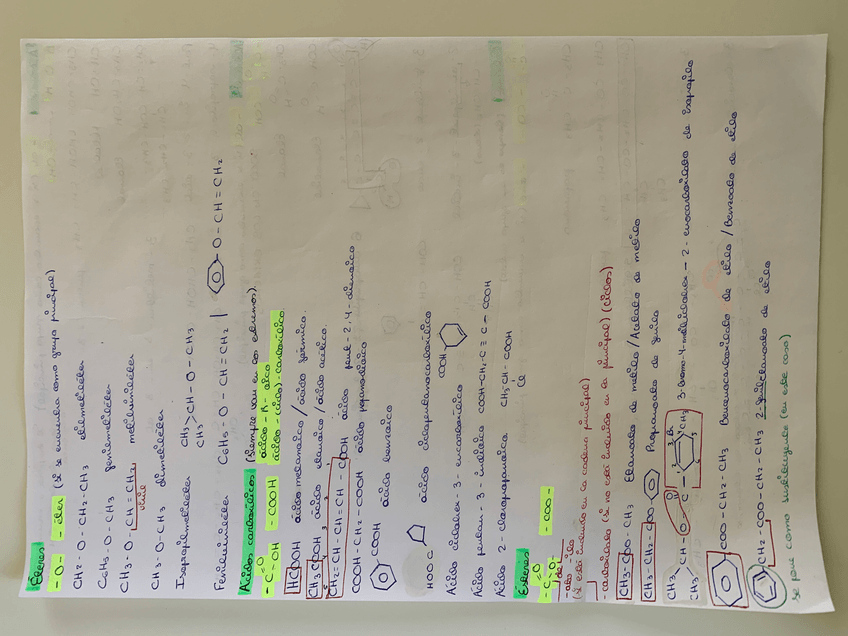 Éteres
-O- -éter (si se encuentra como grupo principal)
CH3-O-CH2-CH3 etilmetiléter
C6H5-O-CH3 fenilmetiléter
CH3-O-CH=CH2 metilviniléter
vinilo
CH3-O-CH3 dimetiléter
Isopropilmetiléter CH3 CH3 >CH-O-CH3
Fenilviniléter C6H5-O-CH=CH2 | O-CH=CH2
Ácidos carboxílicos (siempre van en los extremos).
-C=O-OH -COOH ácido-R-oico
ácido-(ciclo)-carboxílico
HCOOH ácido metanoico/ácido fórmico.
CH3COOH ácido etanoico/ácido acético.
CH2=CH-CH=CH-COOH ácido pent-2,4-dienoico
COOH-CH2-COOH ácido propanodioico
COOH ácido benzoico
HOOC ácido ciclopentanocarboxílico
Ácido ciclohex-3-enocarboxílico COOH
Ácido pentan-3-inodioico COOH-CH2-C≡C-COOH
Ácido 2-cloropropanoico CH3-CH-COOH
Cl
Ésteres
-C=O-O- -COO-
-ato -ilo
(si está incluido en la cadena principal)
-carboxilato (si no está incluido en la principal) (ciclos)
CH3-COO-CH3 Etanoato de metilo/Acetato de metilo
CH3-CH2-COO Propanoato de fenilo
CH3 CH3 CH-O-C O Br CH3 3-bromo-4-metilciclohex-2-enocarboxilato de isopropilo
COO-CH2-CH3 Bencenocarboxilato de etilo/Benzoato de etilo
CH2-COO-CH2-CH3 2-feniletanoato de etilo
Se pone como sustituyente (en este caso)